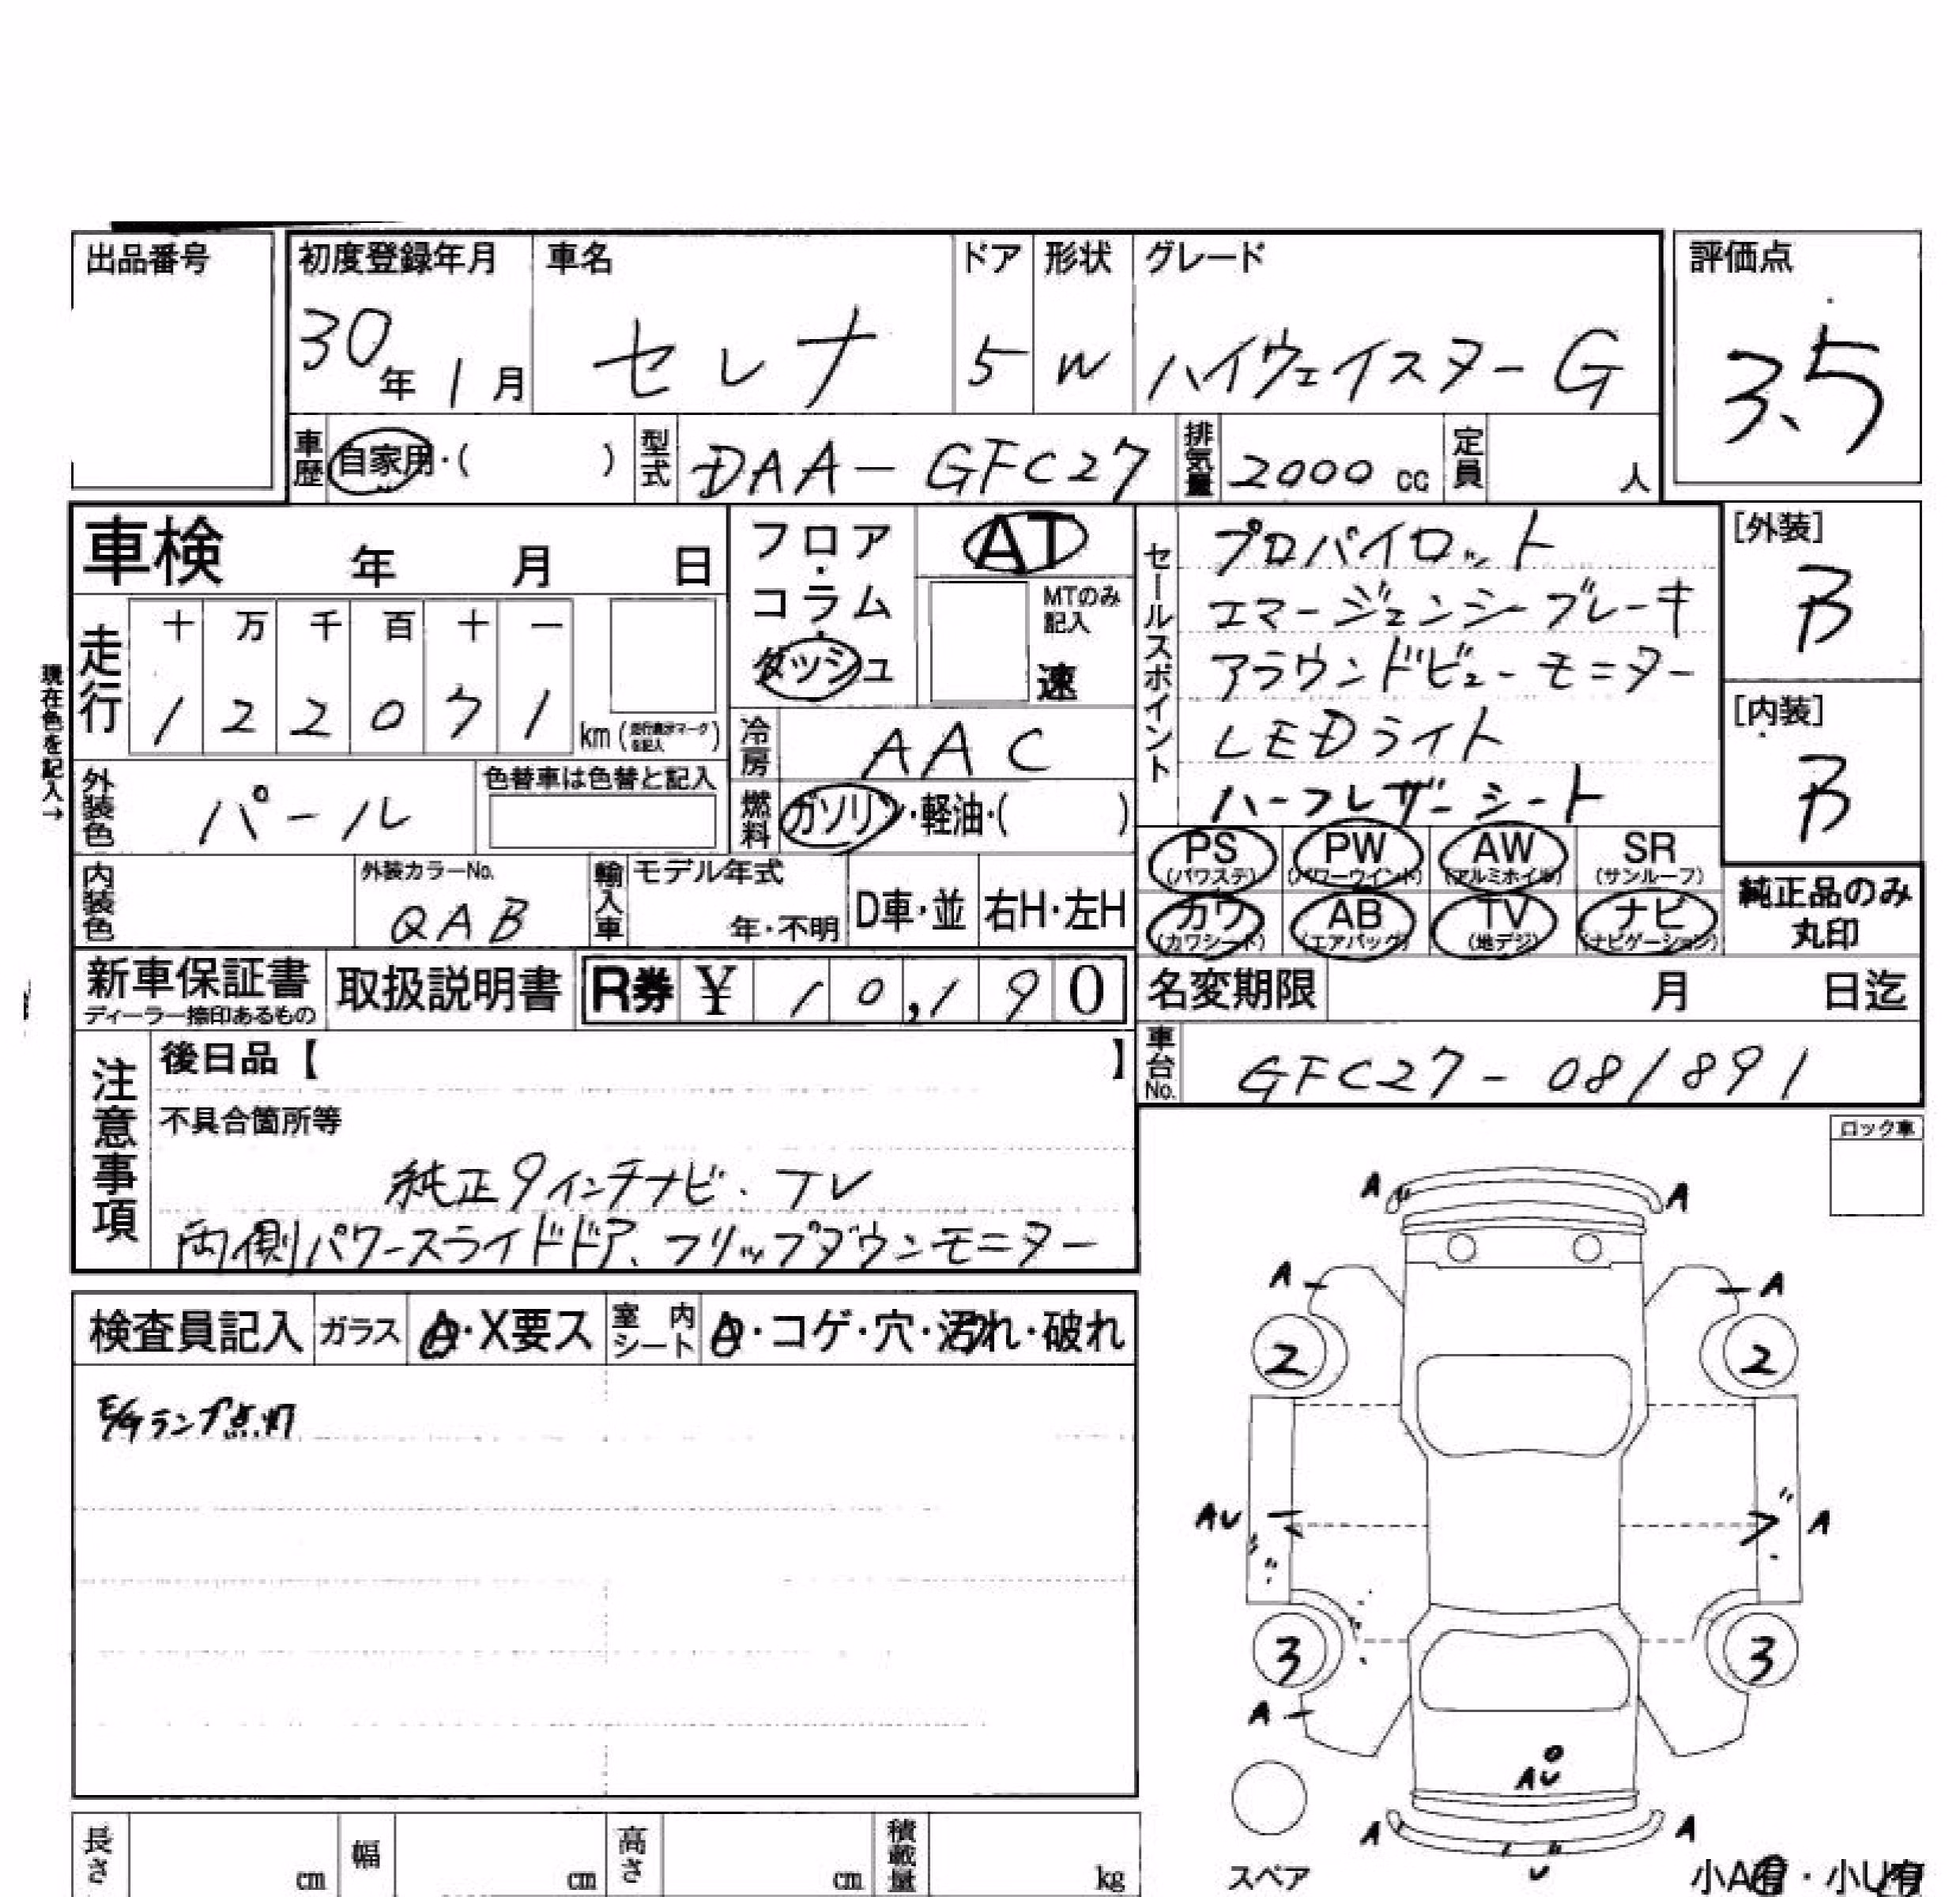 出品番号
初度登録年月 車名 ドア 形状 グレード 評価点
30年1月 セレナ 5 W ハイウェイスターG 3.5
車歴 自家用・( ) 型式 DAA-GFC27 排気量 2000cc 定員 人
車検 年 月 日
フロア・コラム・ダッシュ
AT
MTのみ記入
速
セールスポイント
プロパイロット
エマージェンシーブレーキ
アラウンドビューモニター
LEDライト
ハーフレザーシート
[外装]
B
[内装]
B
現在色を記入→
走行 十 万 千 百 十 一
1 2 2 0 7 1 km
冷房 AAC
外装色 パール 色替車は色替と記入
燃料 ガソリン・軽油・( )
PS (パワステ) PW (パワーウインド) AW (アルミホイル) SR (サンルーフ)
カワ (カワシート) AB (エアバッグ) TV (地デジ) ナビ (ナビゲーション)
純正品のみ
丸印
内装色 外装カラーNo. QAB 輸入車 モデル年式 年・不明 D車・並 右H・左H
新車保証書 取扱説明書 R券 ¥ 10,190
ディーラー捺印あるもの
名変期限 月 日迄
車台No. GFC27-081891
注意事項
後日品【 】
不具合箇所等
純正9インチナビ、TV
両側パワースライドドア、フリップダウンモニター
ロック車
検査員記入 ガラス A・X要ス 室内シート ・コゲ・穴・汚れ・破れ
E/Gランプ点灯
A A
A A
2 2
AU A
3 3
A
AU
A A
U
スペア
小A有・小U有
長さ cm 幅 cm 高さ cm 積載量 kg